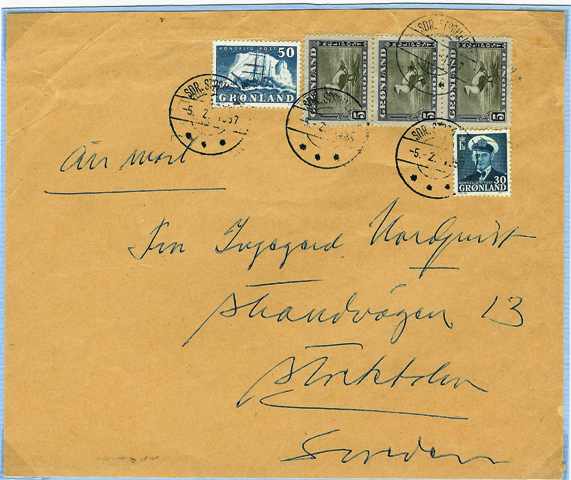 KONGELIG POST 50
GRØNLAND
GRØNLAND 5
GRØNLAND 5
GRØNLAND 5
30
GRØNLAND
SDR. STRØM
-5. 2. 1957
-5. -2.
Air mail
Fru Ingegerd Nordquist
Strandvägen 13
Stockholm
Sweden